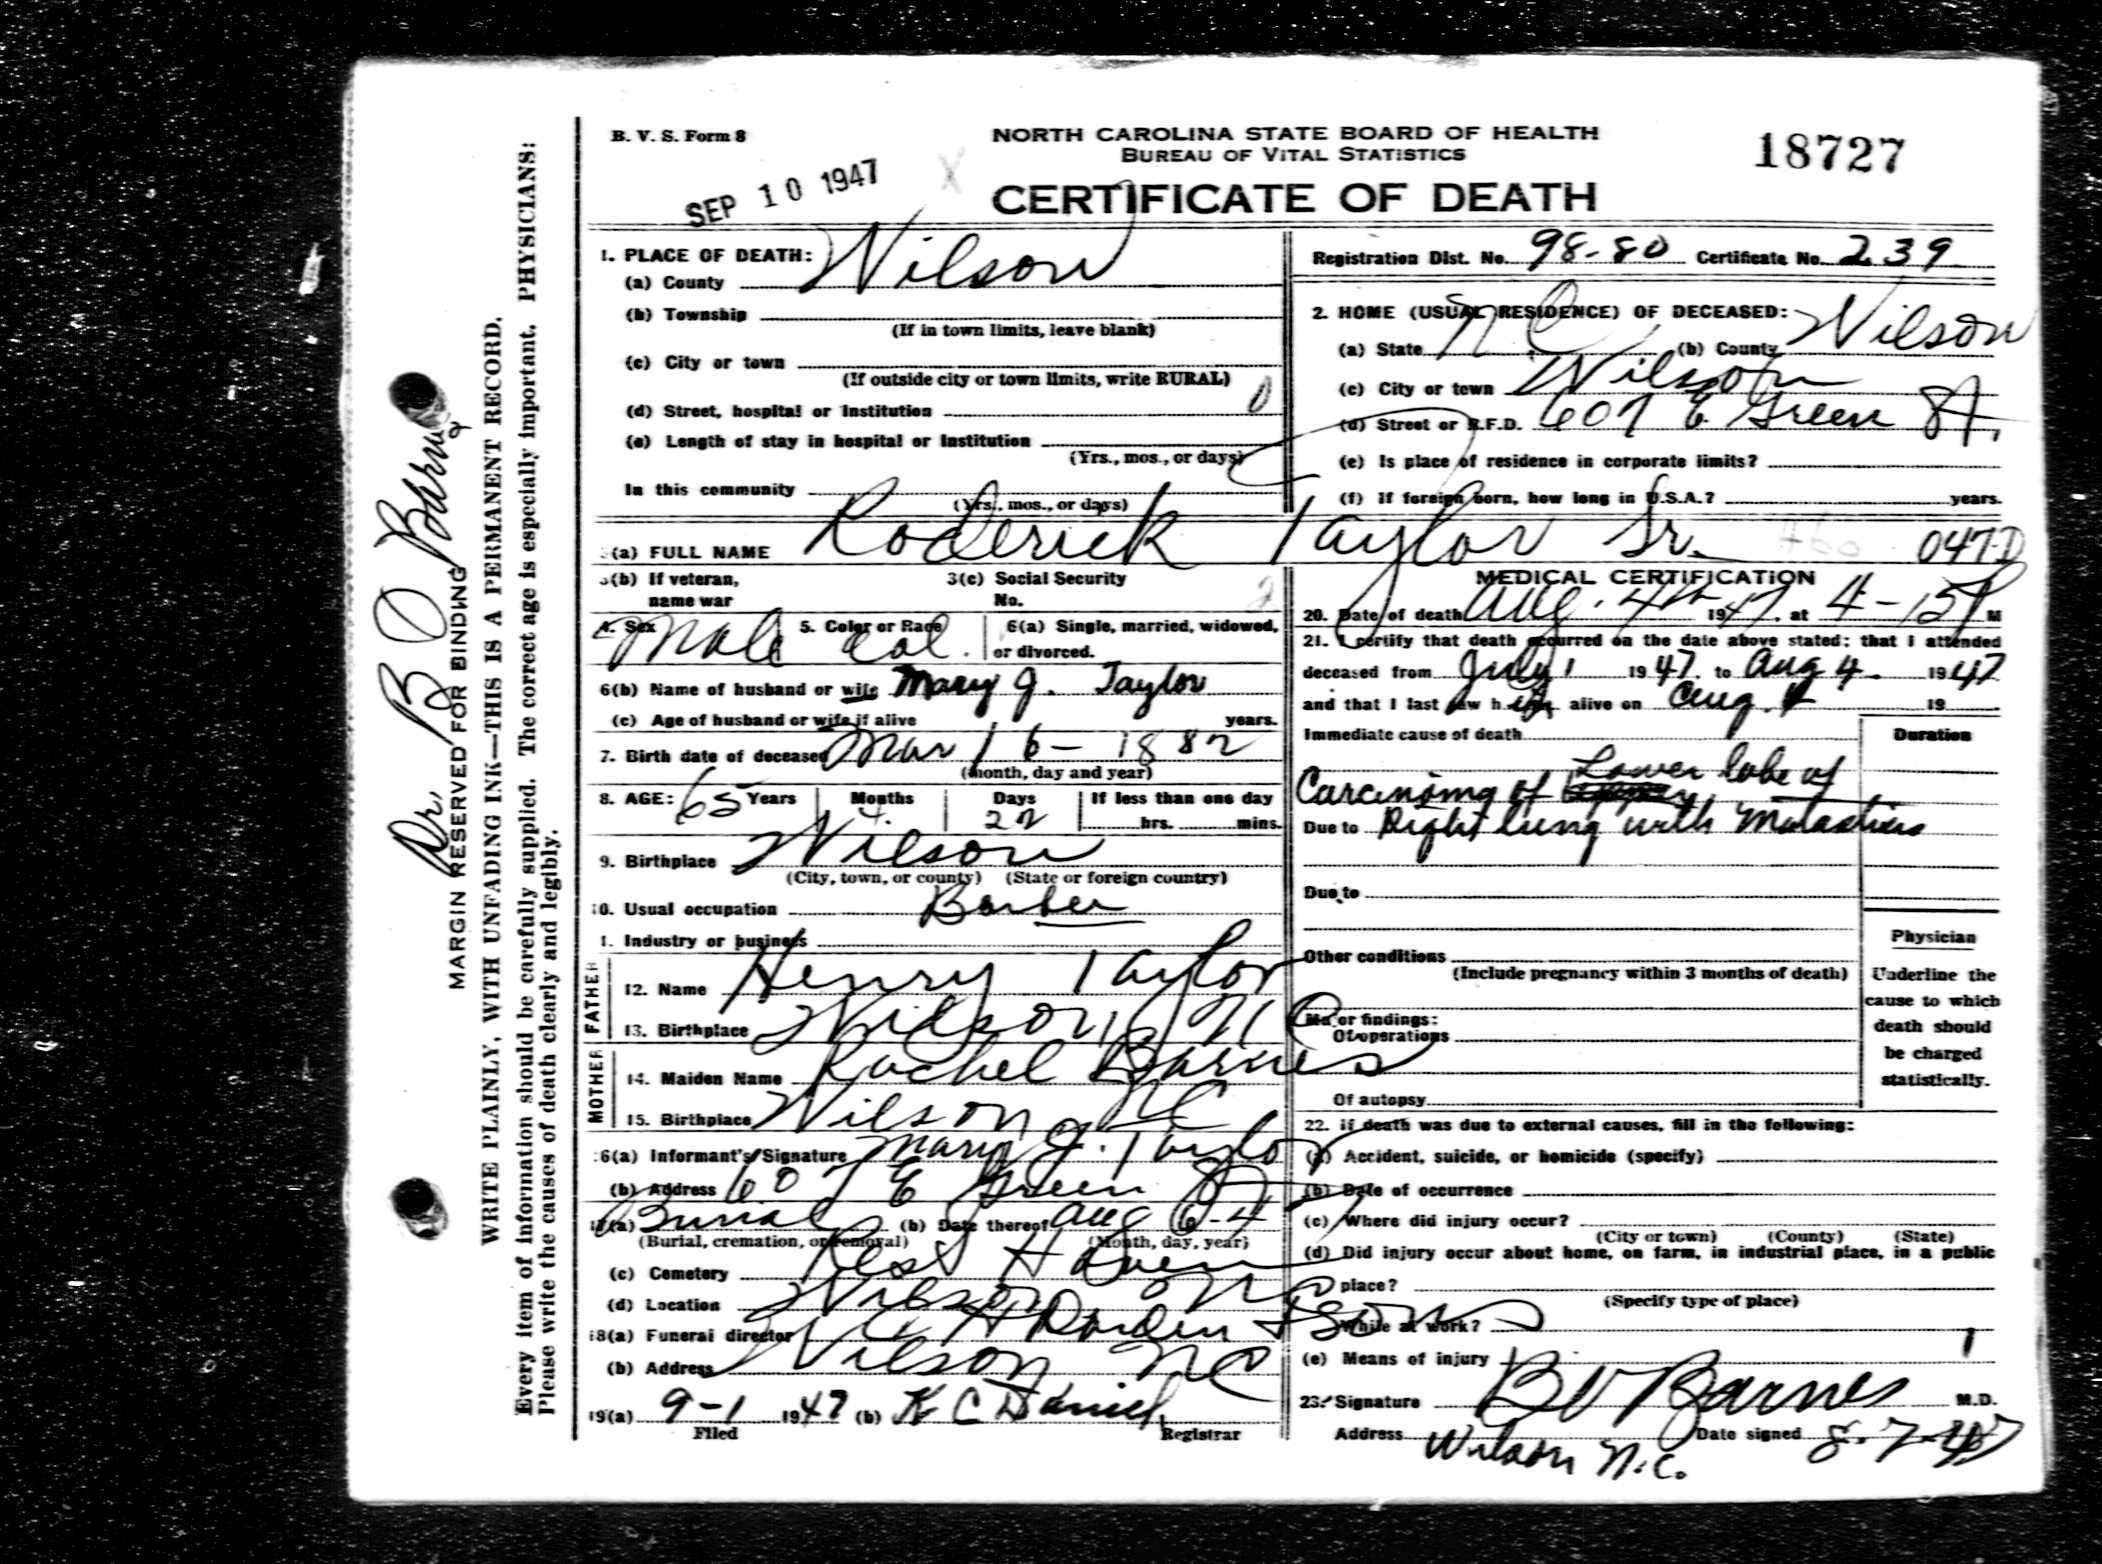 B. V. S. Form 8
NORTH CAROLINA STATE BOARD OF HEALTH
BUREAU OF VITAL STATISTICS
18727
SEP 10 1947
CERTIFICATE OF DEATH
1. PLACE OF DEATH:
(a) County Wilson
(b) Township
(If in town limits, leave blank)
(c) City or town
(If outside city or town limits, write RURAL)
(d) Street, hospital or institution
0
(e) Length of stay in hospital or institution
(Yrs., mos., or days)
In this community
(Yrs., mos., or days)
Registration Dist. No. 98-80 Certificate No. 239
2. HOME (USUAL RESIDENCE) OF DECEASED:
(a) State NC (b) County Wilson
(c) City or town Wilson
(d) Street or R.F.D. 607 E Green St.
(e) Is place of residence in corporate limits?
(f) If foreign born, how long in U.S.A.? years.
3(a) FULL NAME Roderick Taylor Sr.
047-D
3(b) If veteran, name war
3(c) Social Security No.
4. Sex Male 5. Color or Race Col. 6(a) Single, married, widowed, or divorced.
6(b) Name of husband or wife Mary J. Taylor
(c) Age of husband or wife if alive years.
7. Birth date of deceased Mar 16 - 1882
(month, day and year)
8. AGE: 65 Years Months 4. Days 22 If less than one day hrs. mins.
9. Birthplace Wilson
(City, town, or county) (State or foreign country)
10. Usual occupation Barber
1. Industry or business
FATHER
12. Name Henry Taylor
13. Birthplace Wilson, NC
MOTHER
14. Maiden Name Rachel Barnes
15. Birthplace Wilson NC
16(a) Informant's Signature Mary J. Taylor
(b) Address 607 E Green St
17(a) Burial (b) Date thereof Aug 6-4
(Burial, cremation, or removal) (Month, day, year)
(c) Cemetery Rest Haven
(d) Location Wilson NC
18(a) Funeral director C H Darden & Sons
(b) Address Wilson NC
19(a) 9-1 1947 (b) K C Daniel
Filed Registrar
MEDICAL CERTIFICATION
20. Date of death Aug. 4th 1947. at 4-15P M
21. I certify that death occurred on the date above stated; that I attended
deceased from July 1 1947. to Aug 4. 1947
and that I last saw him alive on Aug. 4 19
Immediate cause of death
Duration
Carcinoma of Lower lobe of
Due to Right lung with Metastasis
Due to
Other conditions
(Include pregnancy within 3 months of death)
Major findings:
Of operations
Of autopsy
Physician
Underline the
cause to which
death should
be charged
statistically.
22. If death was due to external causes, fill in the following:
(a) Accident, suicide, or homicide (specify)
(b) Date of occurrence
(c) Where did injury occur?
(City or town) (County) (State)
(d) Did injury occur about home, on farm, in industrial place, in a public
place?
(Specify type of place)
While at work?
(e) Means of injury
1
23. Signature B O Barnes M.D.
Address Wilson N.C. Date signed 8-7-47
Dr. B O Barnes
MARGIN RESERVED FOR BINDING
WRITE PLAINLY, WITH UNFADING INK—THIS IS A PERMANENT RECORD.
Every item of information should be carefully supplied. The correct age is especially important. PHYSICIANS:
Please write the causes of death clearly and legibly.